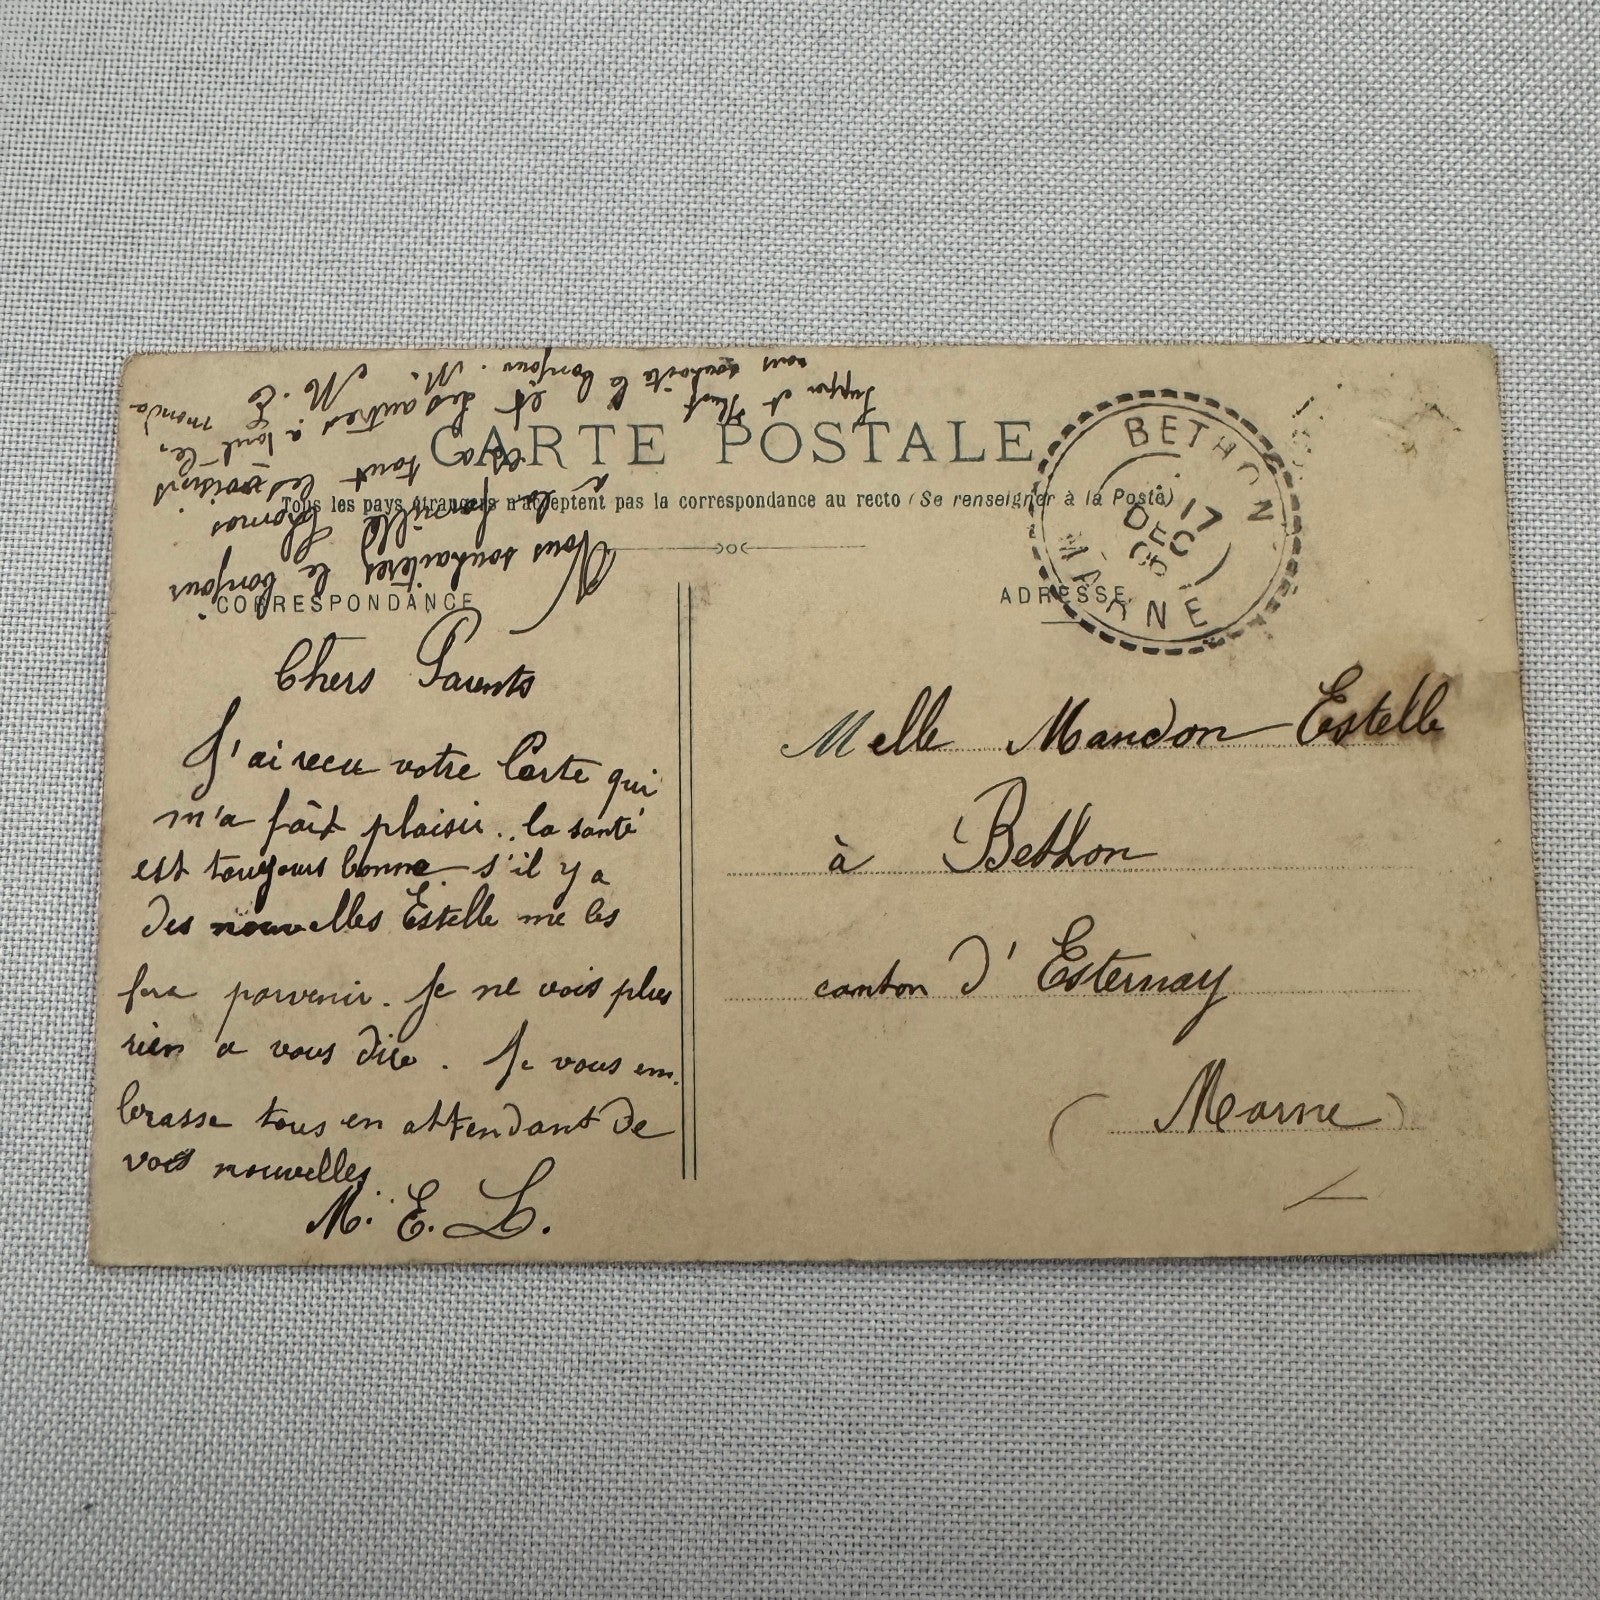 CARTE POSTALE
Tous les pays étrangers n'acceptent pas la correspondance au recto (Se renseigner à la Poste)
CORRESPONDANCE
Chers Parents
J'ai recu votre Carte qui
m'a fait plaisir.. la santé
est toujours bonne s'il y a
des nouvelles Estelle me les
fera parvenir. Je ne vois plus
rien a vous dire. Je vous em.
brasse tous en attendant de
vos nouvelles.
M. E. L.
Vous souhaiterez le bonjour
à la famille Thomas
et a tout les voisins
et des autres. a tout le
monde
M. E
vous souhaite le bonjour. M.
BETHON
17
DEC
05
MARNE
ADRESSE
Melle Mandon Estelle
à Bethon
canton d'Esternay
(Marne)